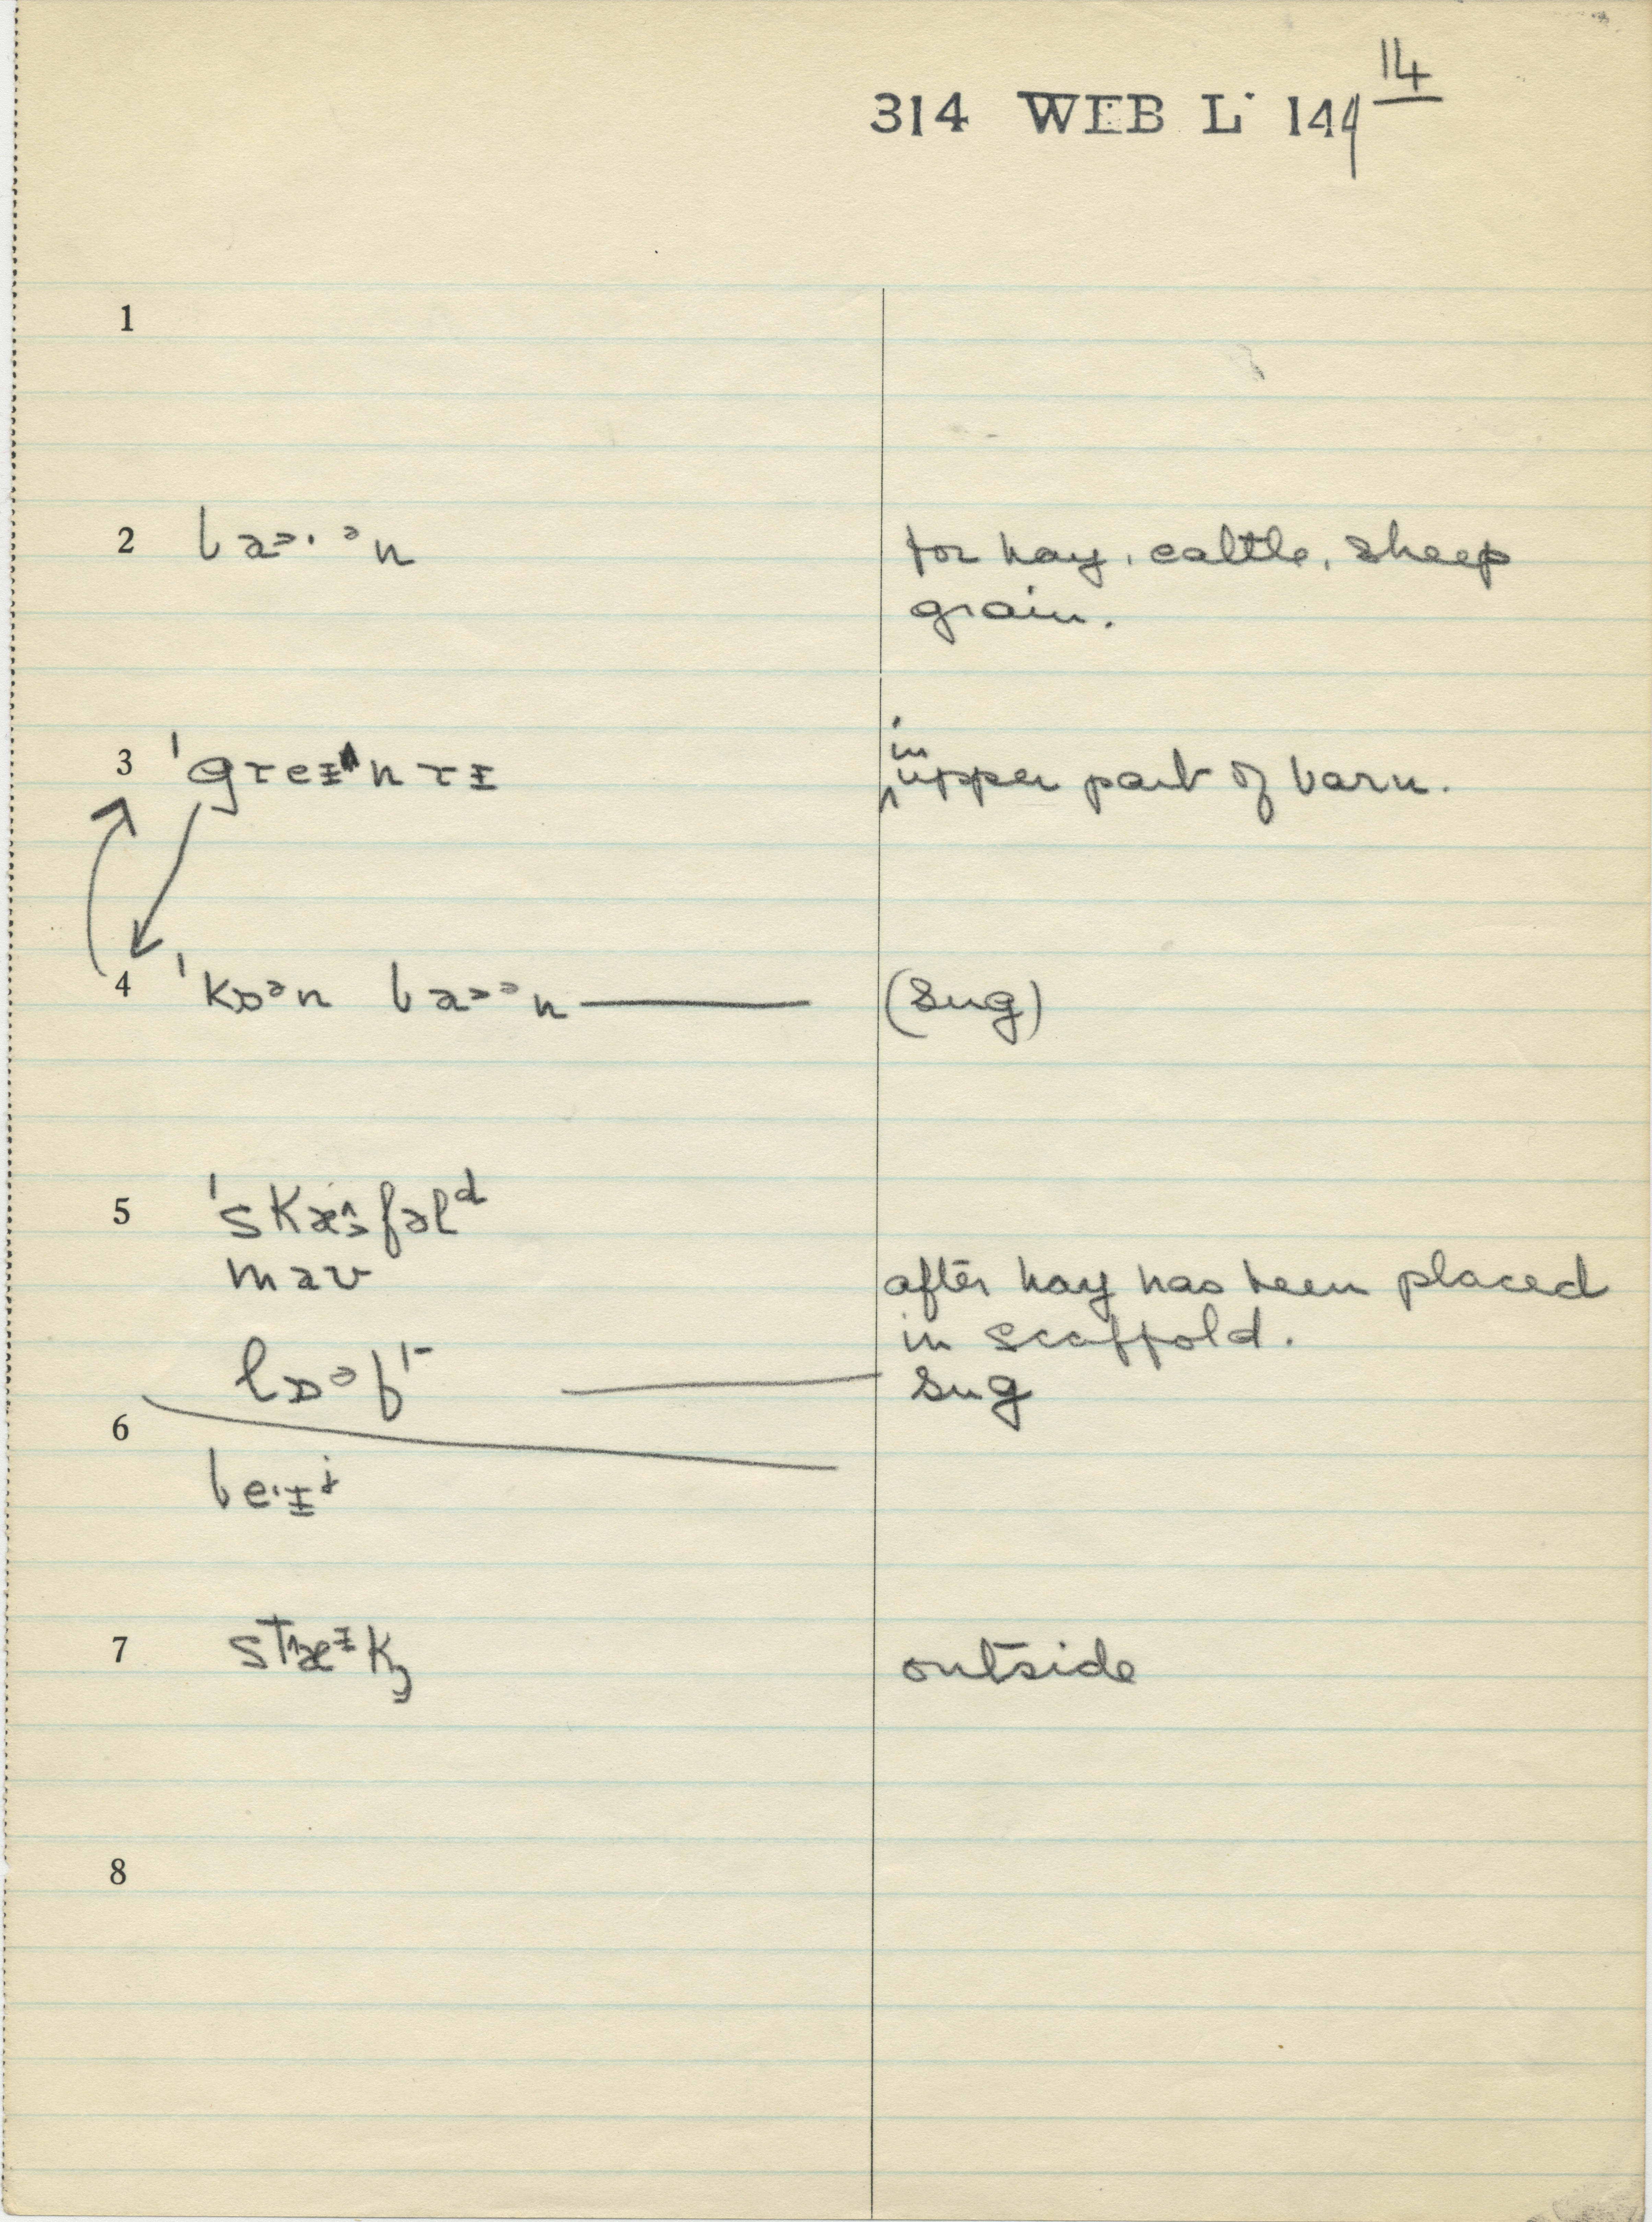 14
314 WEB L 144
1
2 baɔ·ᵊn for hay, cattle, sheep
grain.
3 ˈgreɪnrɪ in
upper part of barn.
4 ˈkɒᵊn baɔᵊn (sug)
5 ˈskæfəlᵈ
maʊ after hay has been placed
in scaffold.
sug
6
be·ɪ
7 outside
8